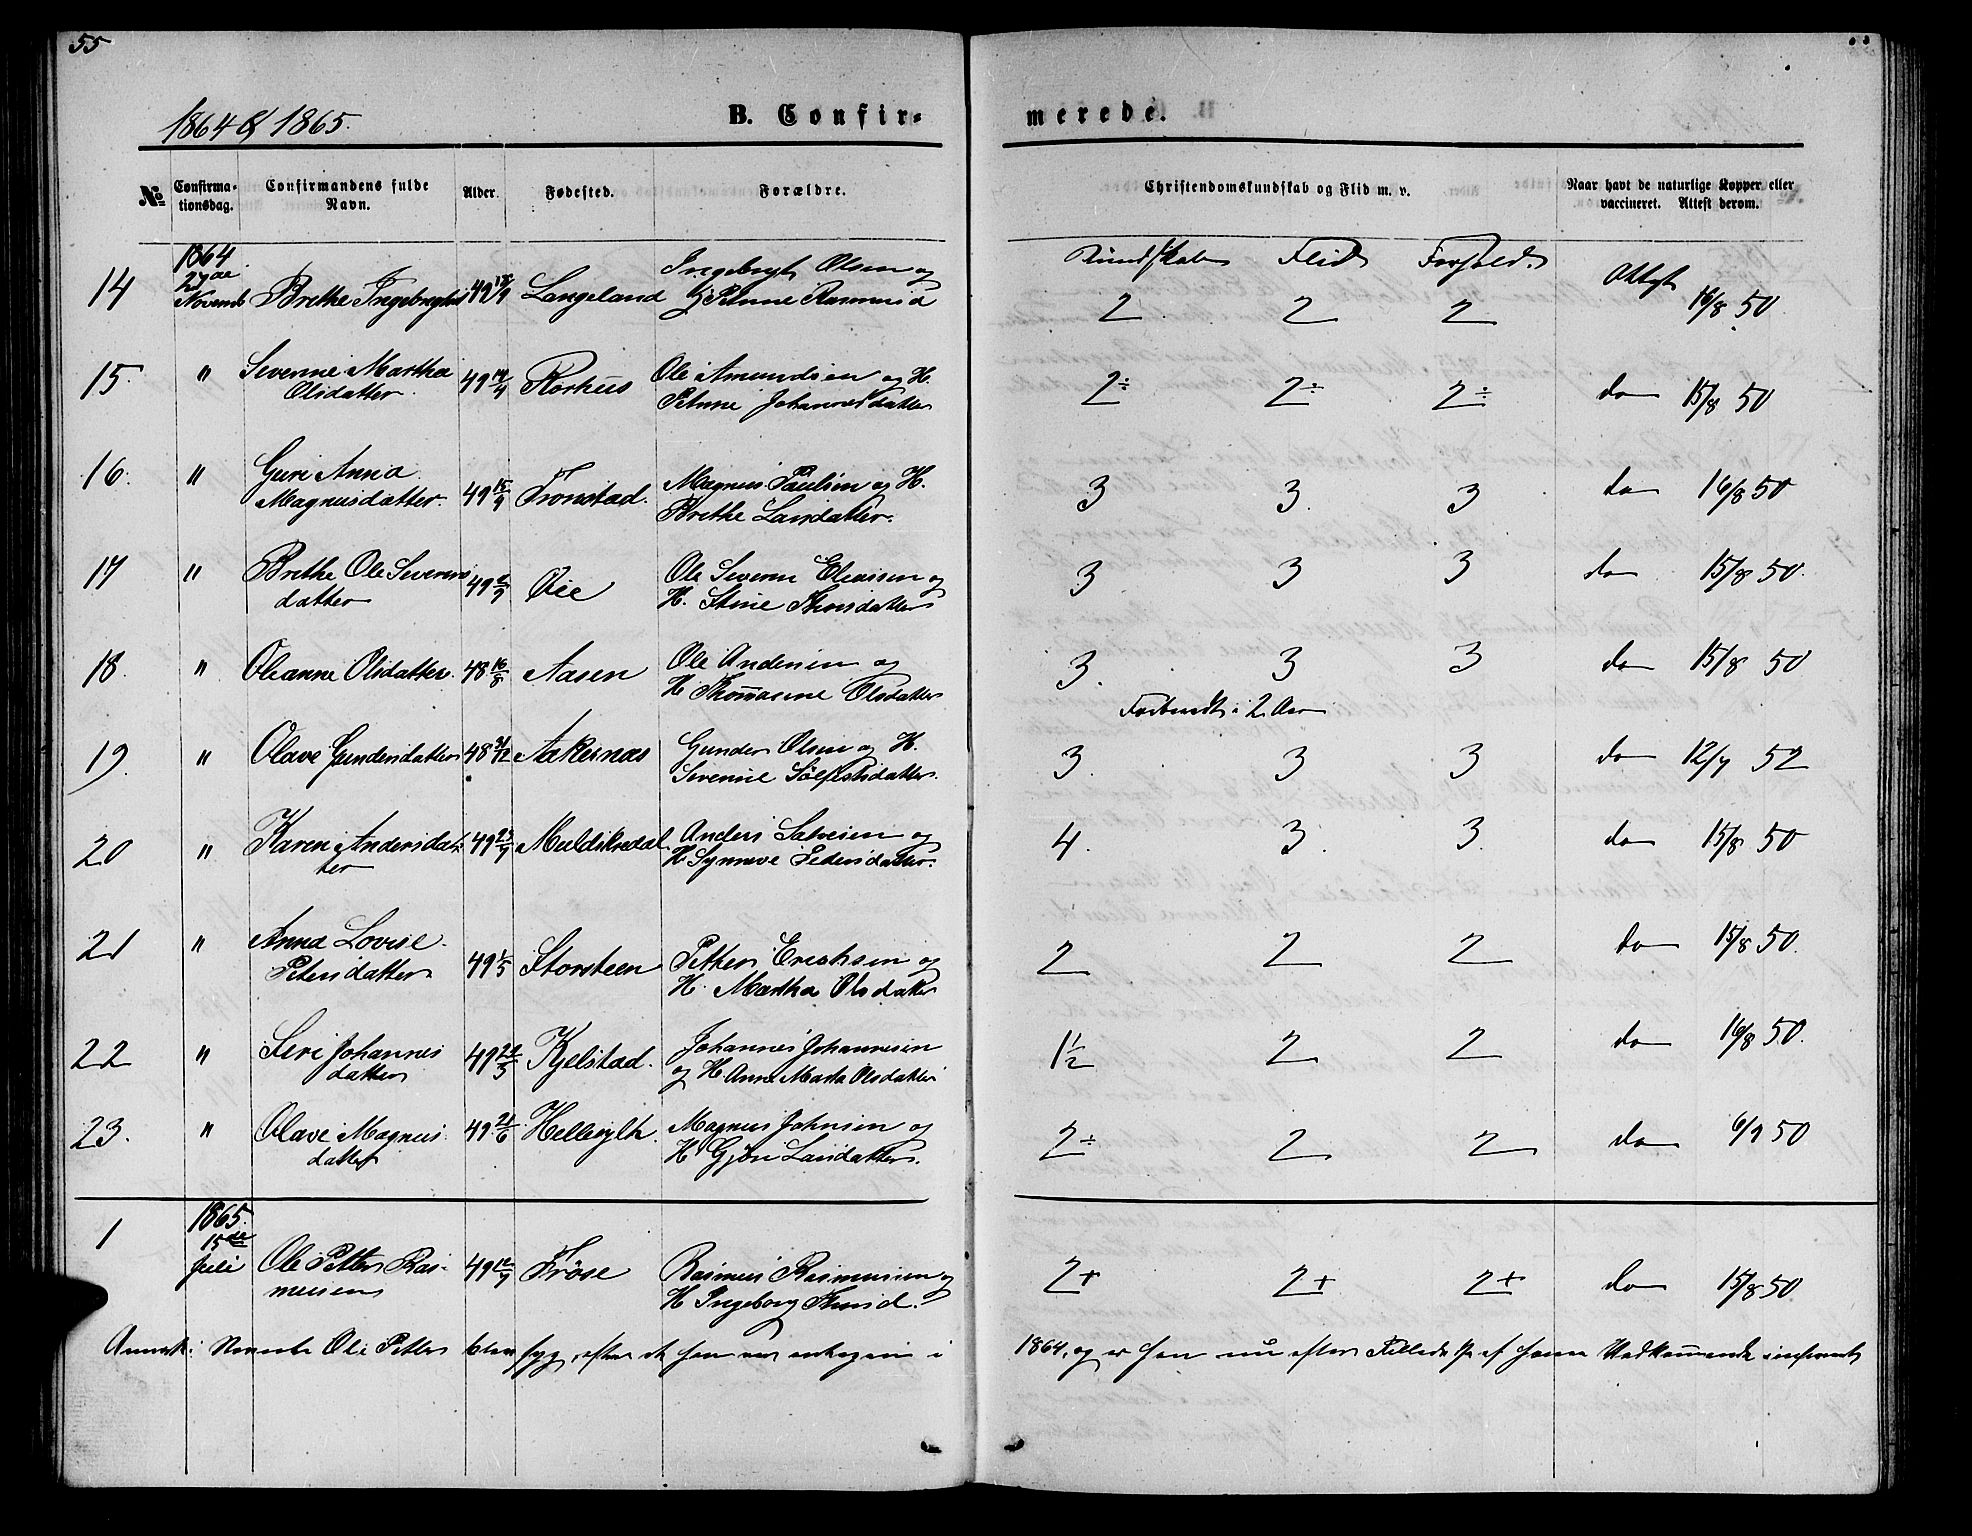 55
1864 & 1865.
B. Confir-
merede.
No
Confirma-
tionsdag.
Confirmandens fulde
Navn.
Alder.
Fødested.
Forældre.
Christendomskundskab og Flid m. v.
Naar havt de naturlige Kopper eller
vaccineret. Attest derom.
1864
27de
Kundskab Flid Forhold
14 Novemb Brethe Ingebregtsd 49 18/9 Langeland Ingebregt Olsen og
H. Petrine Rasmusd 2 2 2 Attest 16/8 50
15. " Severine Martha
Olsdatter 49 14/4 Rorhus Ole Amundsen og H.
Johannesdatter 2÷ 2÷ 2÷ do 15/8 50
16. " Guri Anna
Magnusdatter 49 15/9 Tronstad. Magnus Paulsen og H.
Brethe Larsdatter. 3 3. 3 do 16/8 50
17 " Brethe Ole Severins
datter 49 Øie Ole Severin Eliasen og
H. Stine Knusdatter 3 3 3 do 15/8 50.
18. " Oleanne Olsdatter. 48 16/8 Aasen Ole Andersen og
H. Thomasine Olsdatter 3. 3 3 do 15/8 50
i 2 Aar
19. " Olave Gundersdatter 48 21/12 Aakernæs Gunder Olsen og H.
Severine 3. 3 3 do 12/7 52
20 " Karen Andersdat-
ter 49 23/9 Anders Salvesen og
H. Synneve Pedersdatter. 4. 3. 3. do 15/8 50
21 " Anna Lovise
Petersdatter 49 1/5 Storsteen Petter Ericksen og
H. Martha Olsdatter 2 2 2 do 15/8 50.
22 " Siri Johannes
datter 49 22/3 Kjelstad. Johannes Johannesen
og H. Anne Marta Olsdatter 1½ 2 2 do 16/8 50.
23. " Olave Magnus
datter 49 21/6 Hellesylt. Magnus Johnsen og
H. Gjøri Larsdatter. 2÷ 2 2 do 6/9 50
1865.
15de
1 Juli Ole Petter Ras-
mussen 49 12/9 Frøse Rasmus Rasmussen og
H. Ingeborg Knusd. 2+ 2+ 2+ do 15/8 50
Anmærk: Nævnte Ole Petter blev syg, efter at han var antagen i 1864, og er han nu efter Tilladelse af